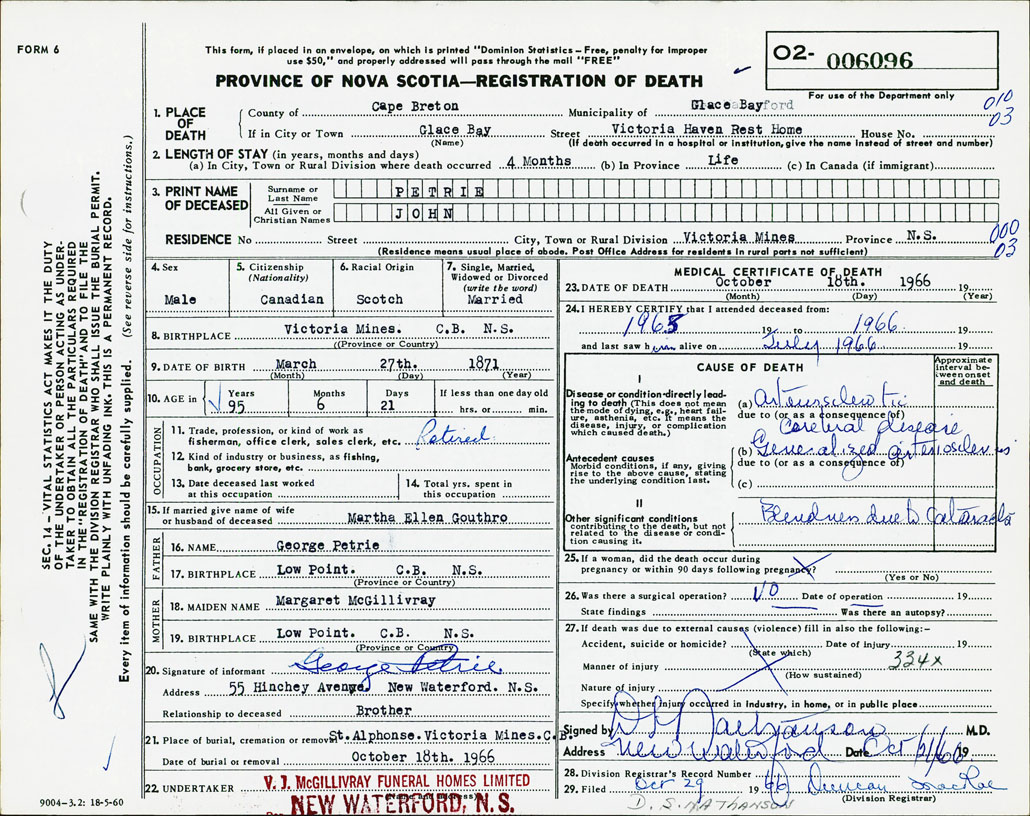 FORM 6
This form, if placed in an envelope, on which is printed "Dominion Statistics – Free, penalty for improper
use $50," and properly addressed will pass through the mail "FREE"
PROVINCE OF NOVA SCOTIA—REGISTRATION OF DEATH
02- 006096
For use of the Department only
010
03
1. PLACE OF DEATH
County of Cape Breton Municipality of Glace Bay
If in City or Town Glace Bay Street Victoria Haven Rest Home House No.
(Name) (If death occurred in a hospital or institution, give the name instead of street and number)
2. LENGTH OF STAY (in years, months and days)
(a) In City, Town or Rural Division where death occurred 4 Months (b) In Province Life (c) In Canada (if immigrant)
3. PRINT NAME OF DECEASED
Surname or Last Name PETRIE
All Given or Christian Names JOHN
RESIDENCE No Street City, Town or Rural Division Victoria Mines Province N.S.
000
03
(Residence means usual place of abode. Post Office Address for residents in rural parts not sufficient)
4. Sex
Male
5. Citizenship
(Nationality)
Canadian
6. Racial Origin
Scotch
7. Single, Married,
Widowed or Divorced
(write the word)
Married
8. BIRTHPLACE Victoria Mines. C.B. N.S.
((Province or Country)
9. DATE OF BIRTH March 27th. 1871
(Month) (Day) (Year)
10. AGE in
Years Months Days If less than one day old
95 6 21 hrs. or min.
OCCUPATION
11. Trade, profession, or kind of work as
fisherman, office clerk, sales clerk, etc. Retired
12. Kind of industry or business, as fishing,
bank, grocery store, etc.
13. Date deceased last worked
at this occupation
14. Total yrs. spent in
this occupation
15. If married give name of wife
or husband of deceased Martha Ellen Gouthro
FATHER
16. NAME George Petrie
17. BIRTHPLACE Low Point. C.B. N.S.
(Province or Country)
MOTHER
18. MAIDEN NAME Margaret McGillivray
19. BIRTHPLACE Low Point. C.B. N.S.
(Province or Country)
20. Signature of informant George Petrie
Address 55 Hinchey Avenye. New Waterford. N.S.
Relationship to deceased Brother
21. Place of burial, cremation or removal St. Alphonse. Victoria Mines. C.B.
Date of burial or removal October 18th. 1966
22. UNDERTAKER V. J. McGILLIVRAY FUNERAL HOMES LIMITED
NEW WATERFORD, N. S.
MEDICAL CERTIFICATE OF DEATH
23. DATE OF DEATH October 18th. 1966 19
(Month) (Day) (Year)
24. I HEREBY CERTIFY that I attended deceased from:
1965 19 to 1966 19
and last saw him alive on July 1966 19
CAUSE OF DEATH
Approximate
interval be-
tween onset
and death
I
Disease or condition-directly lead-
ing to death (This does not mean
the mode of dying, e.g., heart fail-
ure, asthenia, etc. It means the
disease, injury, or complication
which caused death.)
(a) Arteriosclerotic
due to (or as a consequence of)
Cerebral disease
Antecedent causes
Morbid conditions, if any, giving
rise to the above cause, stating
the underlying condition last.
(b) Generalized arteriosclerosis
due to (or as a consequence of)
(c)
II
Other significant conditions
contributing to the death, but not
related to the disease or condi-
tion causing it.
Blindness due to Cataracts
25. If a woman, did the death occur during
pregnancy or within 90 days following pregnancy?
(Yes or No)
26. Was there a surgical operation? NO Date of operation 19
State findings Was there an autopsy?
27. If death was due to external causes (violence) fill in also the following:–
Accident, suicide or homicide? Date of injury 19
(State which)
334x
Manner of injury
(How sustained)
Nature of injury
Specify whether injury occurred in industry, in home, or in public place
Signed by D S Nathanson M.D.
Address New Waterford Date Oct 21/66 19
28. Division Registrar's Record Number
29. Filed Oct 29 1966 Duncan MacRae
(Division Registrar)
D. S. NATHANSON
9004-3.2: 18-5-60
SEC. 14 – VITAL STATISTICS ACT MAKES IT THE DUTY
OF THE UNDERTAKER OR PERSON ACTING AS UNDER-
TAKER TO OBTAIN ALL THE PARTICULARS REQUIRED
IN THE "REGISTRATION OF DEATH" AND TO FILE THE
SAME WITH THE DIVISION REGISTRAR WHO SHALL ISSUE THE BURIAL PERMIT.
WRITE PLAINLY WITH UNFADING INK. THIS IS A PERMANENT RECORD.
Every item of information should be carefully supplied. (See reverse side for instructions.)